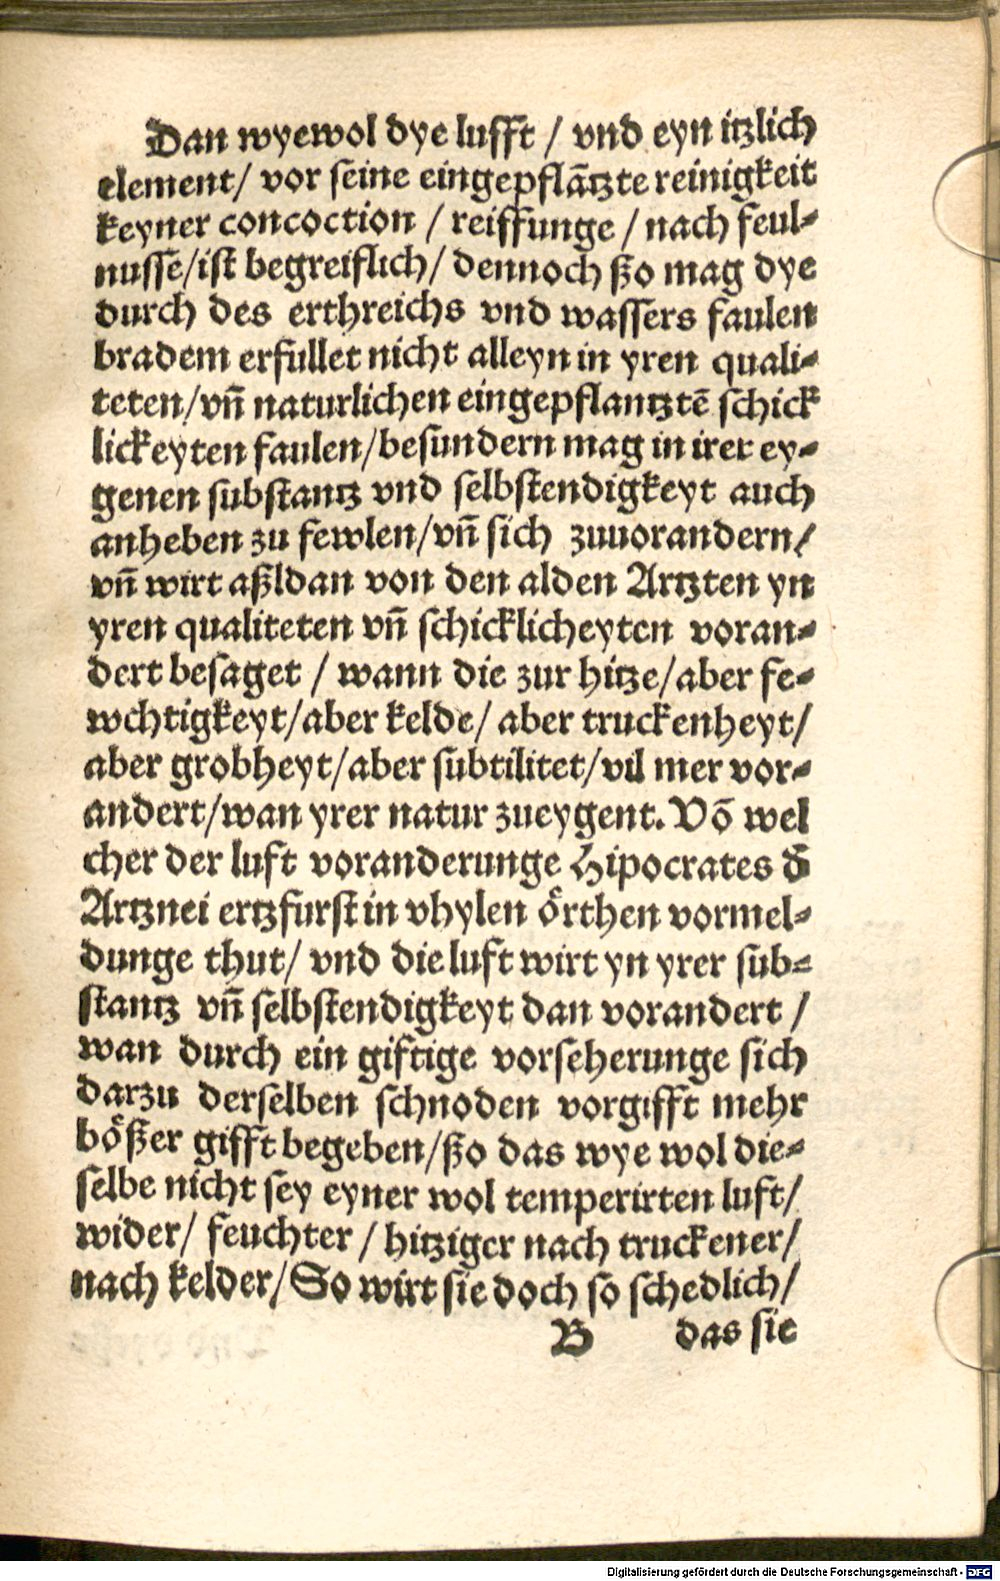 Dan wyewol dye lufft / vnd eyn itzlich
element/ vor seine eingepflātzte reinigkeit
keyner concoction / reiffunge / nach feul-
nusse/ist begreiflich/ dennoch ßo mag dye
durch des erthreichs vnd wassers faulen
bradem erfullet nicht alleyn in yren quali-
teten/vñ naturlichen eingepflantztē schick
lickeyten faulen/besundern mag in irer ey-
genen substantz vnd selbstendigkeyt auch
anheben zu fewlen/vñ sich zuuorandern/
vñ wirt aßldan von den alden Artzten yn
yren qualiteten vñ schicklicheyten voran-
dert besaget / wann die zur hitze/aber fe-
wchtigkeyt/aber kelde/ aber truckenheyt/
aber grobheyt/aber subtilitet/vil mer vor-
andert/wan yrer natur zueygent. Võ wel
cher der luft voranderunge Hipocrates đ
Artznei ertzfurst in vhylen örthen vormel-
dunge thut/ vnd die luft wirt yn yrer sub-
stantz vñ selbstendigkeyt dan vorandert /
wan durch ein giftige vorseherunge sich
darzu derselben schnoden vorgifft mehr
bößer gifft begeben/ßo das wye wol die-
selbe nicht sey eyner wol temperirten luft/
wider/ feuchter / hitziger nach truckener/
nach kelder/ So wirt sie doch so schedlich/
B das sie
Digitalisierung gefördert durch die Deutsche Forschungsgemeinschaft - DFG